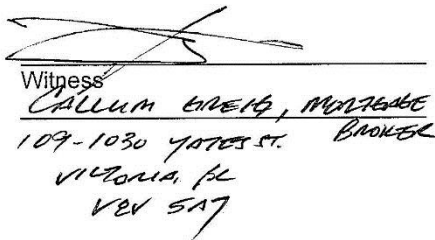 Witness
CALLUM GREIG, MORTGAGE
BROKER
109-1030 YATES ST.
VICTORIA, BC
V8V 5A7